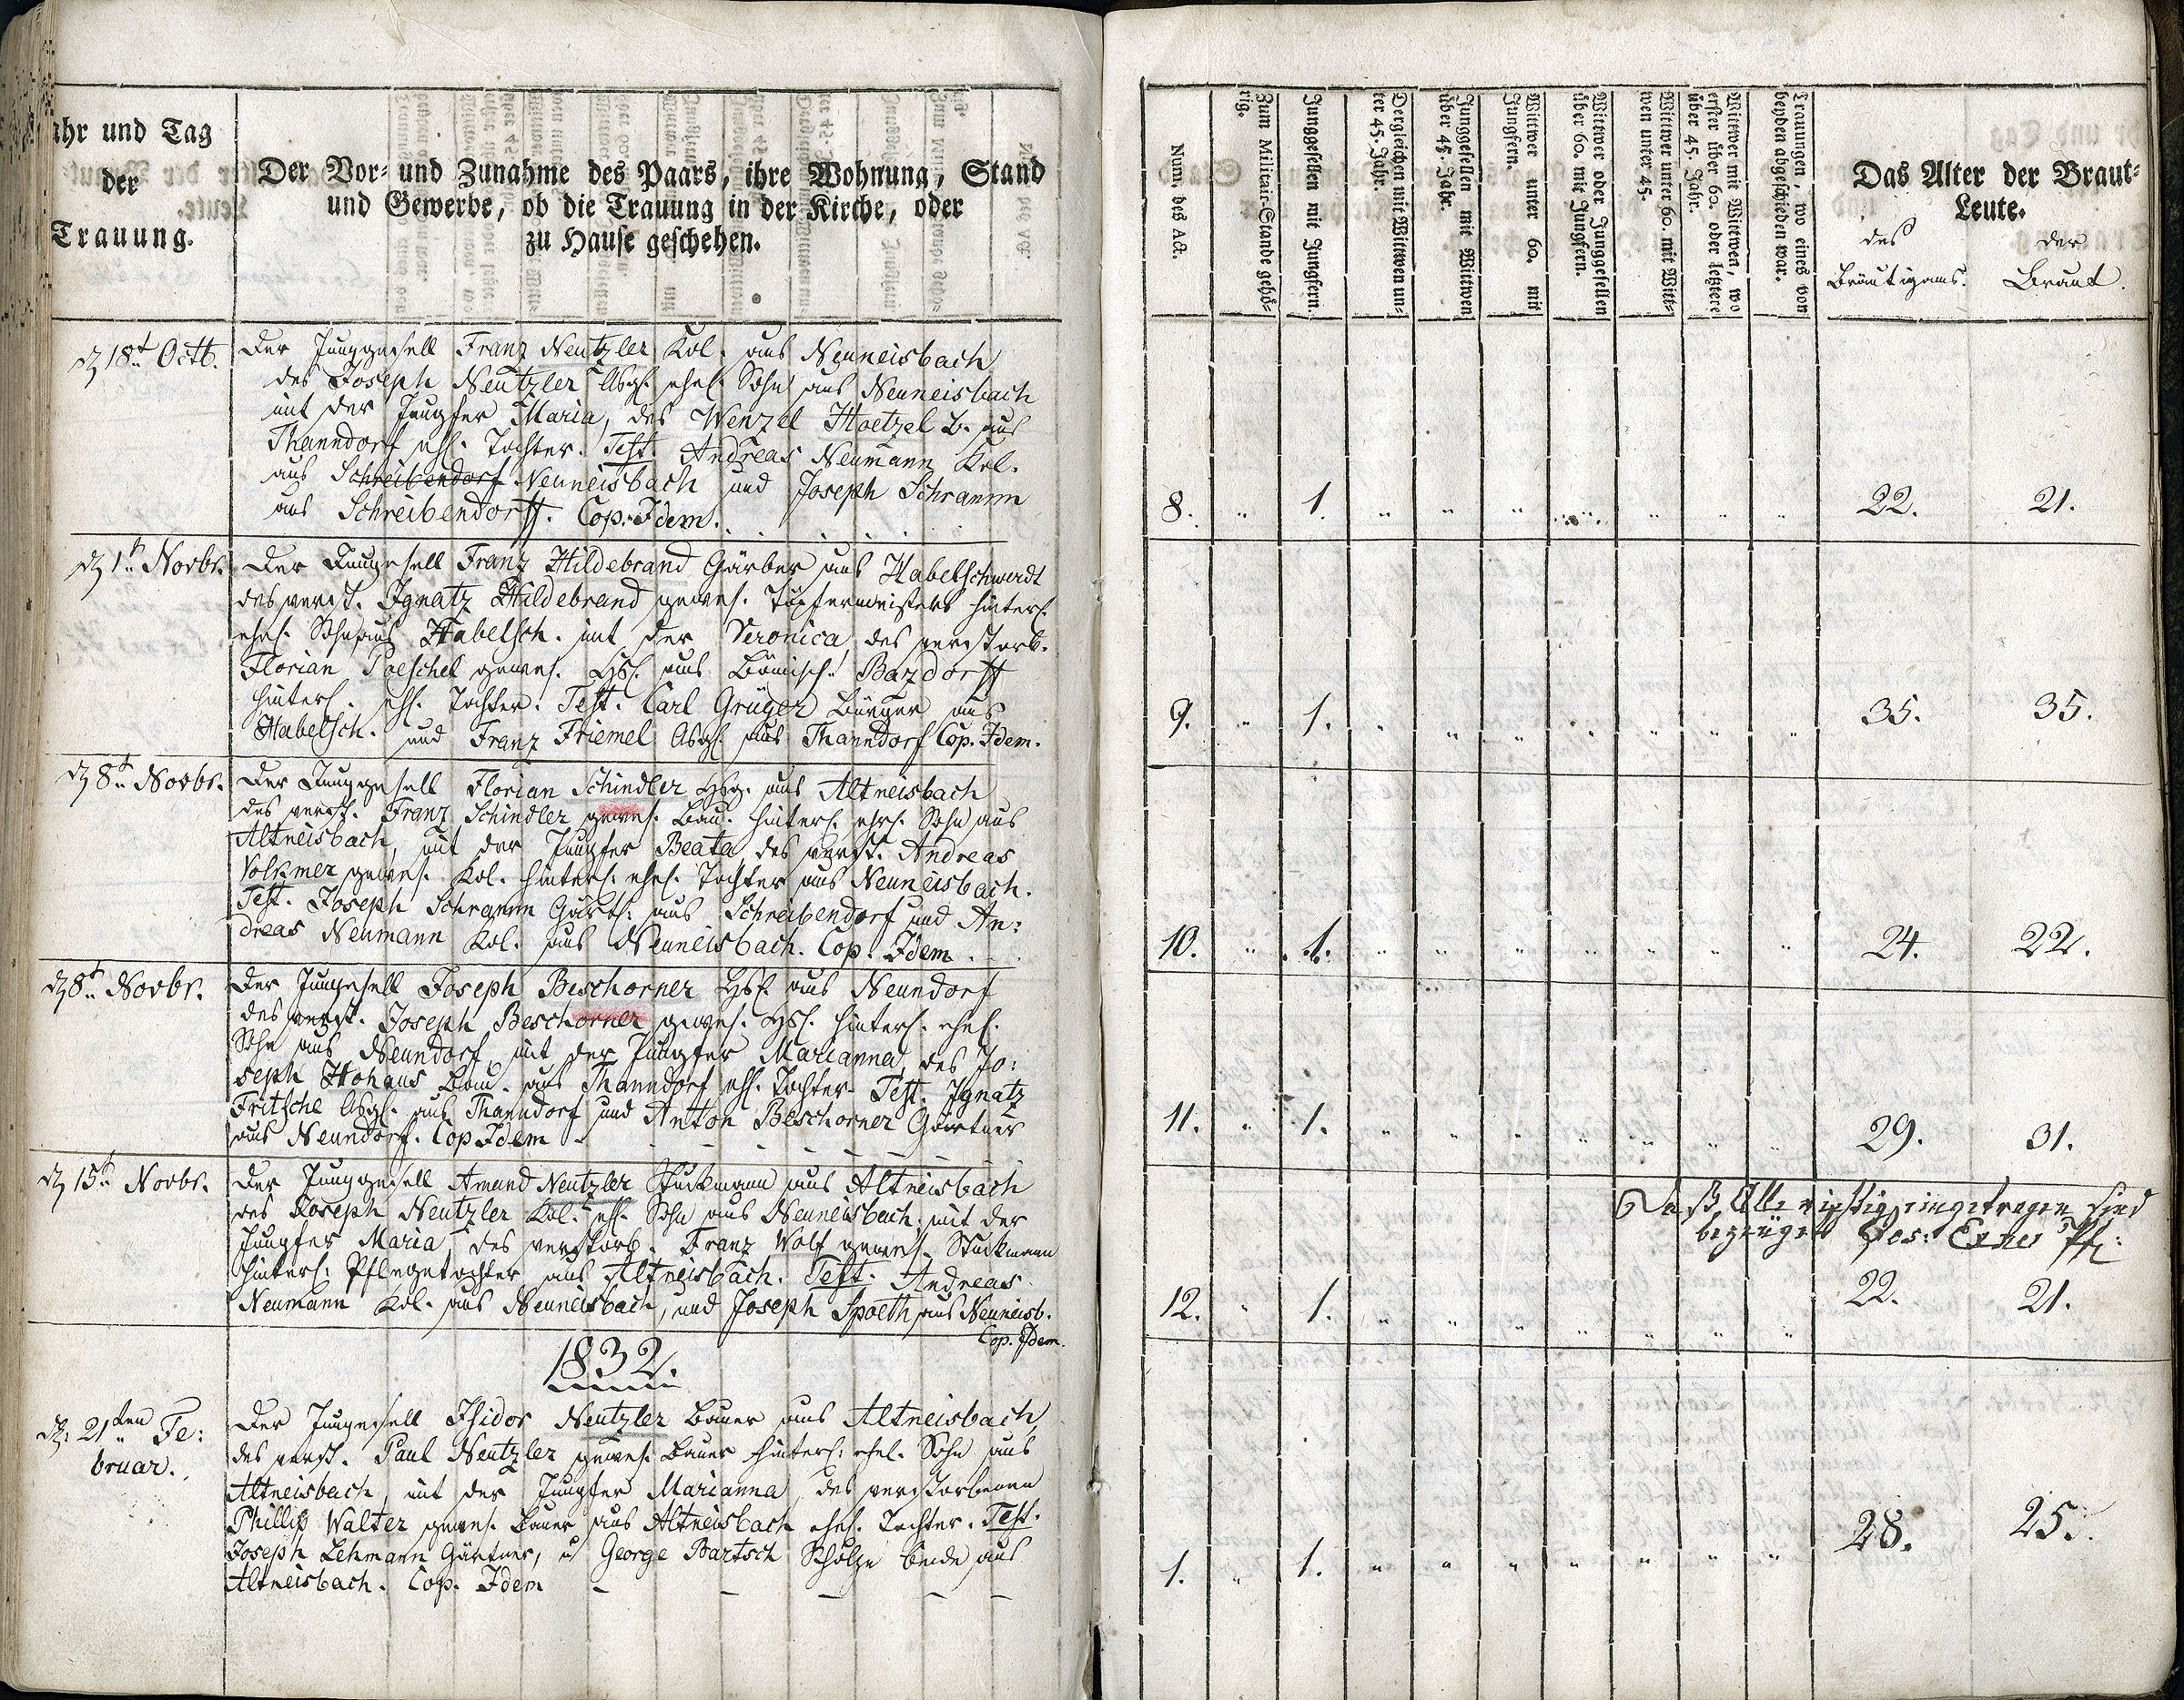 ahr und Tag
der
Trauung.
Der Vor- und Zunahme des Paars, ihre Wohnung, Stand
und Gewerbe, ob die Trauung in der Kirche, oder
zu Hause geschehen.
Num. des Act.
Zum Militair-Stande gehö-
rig.
Junggesellen mit Jungfern.
Dergleichen mit Wittwen un-
ter 45. Jahr.
Junggesellen mit Wittwen
über 45. Jahr.
Wittwer unter 60. mit
Jungfern.
Wittwer oder Junggesellen
über 60. mit Jungfern.
Wittwer unter 60. mit Witt-
wen unter 45.
Wittwer mit Wittwen, wo
erster über 60. oder letztere
über 45. Jahr.
Trauungen, wo eines von
beyden abgeschieden war.
Das Alter der Braut-
Leute.
des
Bräutigams.
der
Braut.
18t Octb.
Der Junggesell Franz Neutzler Kol. aus Neuneisbach
des Joseph Neutzler Absg. ehel. Sohn aus Neuneisbach
mit der Jungfer Maria, des Wenzel Hoetzel B. aus
Thanndorf ehl. Tochter. Test. Andreas Neumann Kol.
aus Schreibendorf Neuneisbach und Joseph Schramm
aus Schreibendorff. Cop. Idem.
8. 1. 22. 21.
1t Novbr.
Der Jungesell Franz Hildebrand Gärber aus Habelschwerdt
des verst. Ignatz Hildebrand gewes. Töpfermeisters hinterl.
ehel. Sohn aus Habelsch. mit der Veronica des verstorb.
Florian Poeschel gewes. aus Bömisch Bazdorff
hinterl. ehl. Tochter. Test. Carl Grüger Bürger aus
Habelsch. und Franz Friemel Absg. aus Thanndorf Cop. Idem.
9. 1. 35. 35.
8t Novbr.
Der Junggesell Florian Schindler aus Altneisbach
des verst. Franz Schindler gewes. Bau. hinterl. ehel. Sohn aus
Altneisbach, mit der Jungfer Beata des verst. Andreas
Volkmer gewes. Kol. hinterl. ehel. Tochter aus Neuneisbach.
Test. Joseph Schramm Gärt. aus Schreibendorf und An:
dreas Neumann Kol. aus Neuneisbach. Cop. Idem.
10. 1. 24. 22.
8t Novbr.
Der Jungesell Joseph Beschorner aus Neundorf
des verst. Joseph Beschorner gewes. hinterl. ehel.
Sohn aus Neundorf mit der Jungfer Marianna, des Jo:
seph Hohaus Bau. aus Thanndorf ehl. Tochter. Test. Ignatz
Fritsche Absg. aus Thanndorf und Anton Beschorner Gärtner
aus Neundorf. Cop Idem
11. 1. 29. 31.
15t Novbr.
Der Junggesell Amand Neutzler Stückmann aus Altneisbach
des Joseph Neutzler Kol. ehl. Sohn aus Neuneisbach mit der
Jungfer Maria des verstorb. Franz Wolf gewes. Stückmann
hinterl. Pflegetochter aus Altneisbach. Test. Andreas
Neumann Kol. aus Neuneisbach, und Joseph Spoeth aus Neuneisb.
Cop. Idem.
Daß Alle richtig eingetragen sind
bezeuget
12. 1. 22. 21.
1832.
21ten Fe:
bruar.
Der Jungesell Isidor Neutzler Bauer aus Altneisbach,
des verst. Paul Neutzler gewes. Bauer hinterl. ehel. Sohn aus
Altneisbach, mit der Jungfer Marianna, des verstorbenen
Phillip Walter gewes. Bauer aus Altneisbach ehel. Tochter. Test.
Joseph Lehmann Gärtner, u George Bartsch Scholze beide aus
Altneisbach. Cop. Idem
1. 1. 28. 25.